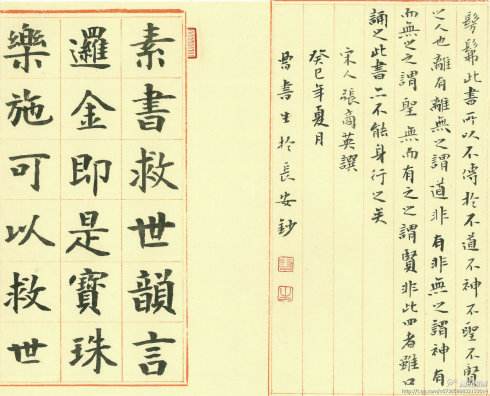 髣髴此書所以不傳於不道不神不聖不賢
之人也離有離無之謂道非有非無之謂神有
而無之之謂聖無而有之之謂賢非此四者雖口
誦之此書亦不能身行之矣
宋人張商英撰
癸巳年夏月
書生於長安鈔
素書救世韻言
邏金即是寶珠
樂施可以救世